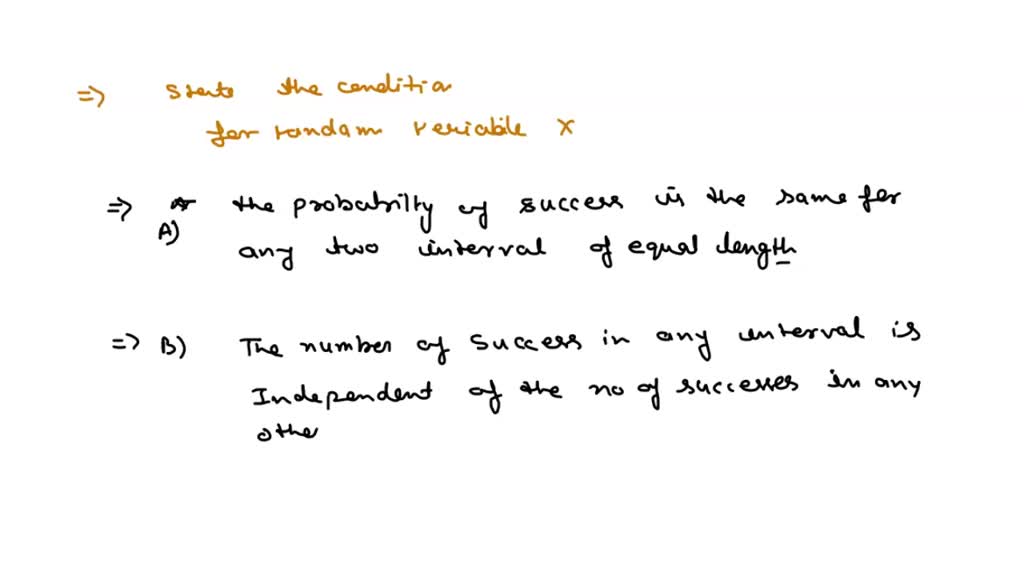 => State the condition
for random variable X
=> A) the probability of success is the same for
any two interval of equal length
=> B) The number of success in any interval is
Independent of the no of successes in any
othe